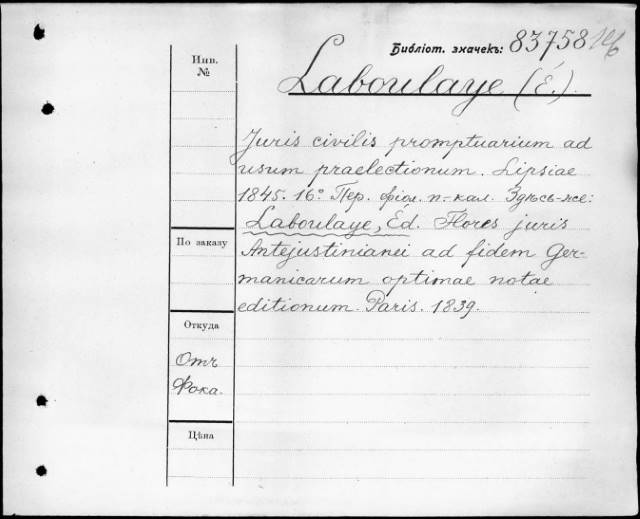 Библіот. значекъ: 83758
Инв.
№
Laboulaye (É.)
Juris civilis promptuarium ad
usum praelectionum. Lipsiae
1845. 16° Пер. фіол. п.-кал. Здѣсь-же:
Laboulaye, Éd. Flores juris
Antejustinianei ad fidem Ger-
manicarum optimae notae
editionum. Paris. 1839.
По заказу
Откуда
Отъ
Фока.
Цѣна